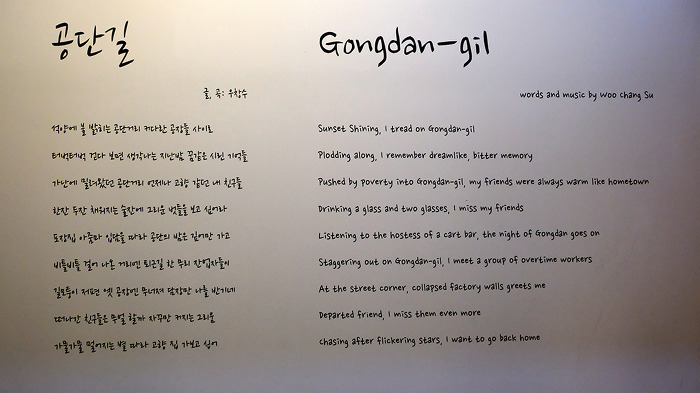 공단길
글, 곡: 우창수
석양에 불 밝히는 공단거리 커다란 공장들 사이로
터벅터벅 걷다 보면 생각나는 지난밤 꿈같은 시린 기억들
가난에 밀려왔던 공단거리 언제나 고향 같던 내 친구들
한잔 두잔 채워지는 술잔에 그리운 벗들을 보고 싶어라
포장집 아줌마 입담을 따라 공단의 밤은 깊어만 가고
비틀비틀 걸어 나온 거리엔 퇴근길 한 무리 잔업자들이
길모퉁이 저편 옛 공장엔 무너져 담장만 나를 반기네
떠나간 친구들은 무얼 할까 자꾸만 커지는 그리움
가물가물 멀어지는 별 따라 고향 집 가보고 싶어
Gongdan-gil
words and music by Woo Chang Su
Sunset Shining, I tread on Gongdan-gil
Plodding along, I remember dreamlike, bitter memory
Pushed by poverty into Gongdan-gil, my friends were always warm like hometown
Drinking a glass and two glasses, I miss my friends
Listening to the hostess of a cart bar, the night of Gongdan goes on
Staggering out on Gongdan-gil, I meet a group of overtime workers
At the street corner, collapsed factory walls greets me
Departed friend, I miss them even more
chasing after flickering stars, I want to go back home